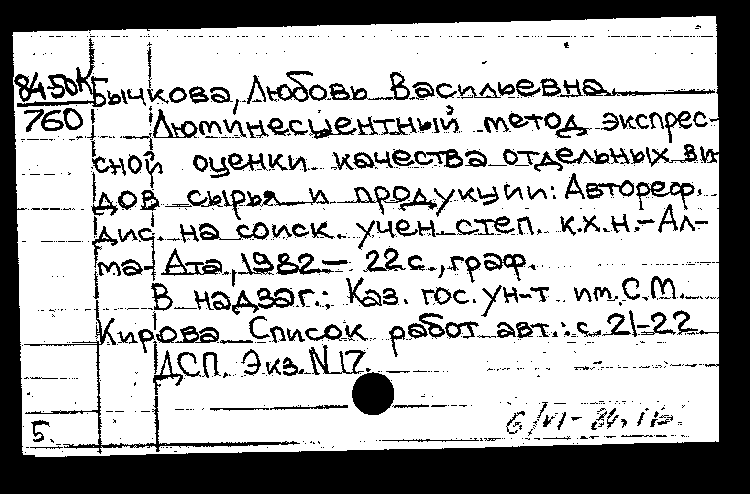 84-50К
760
Бычкова, Любовь Васильевна.
Люминесцентный метод экспрес-
сной оценки качества отдельных ви
дов сырья и продукции: Автореф.
дис. на соиск. учен. степ. к.х.н.-Ал-
ма-Ата, 1982 — 22 с., граф.
В надзаг.: Каз. гос. ун-т им. С.М.
Кирова Список работ авт.: с. 21-22.
ДСП. Экз. N 17.
5.
6/VI-84.